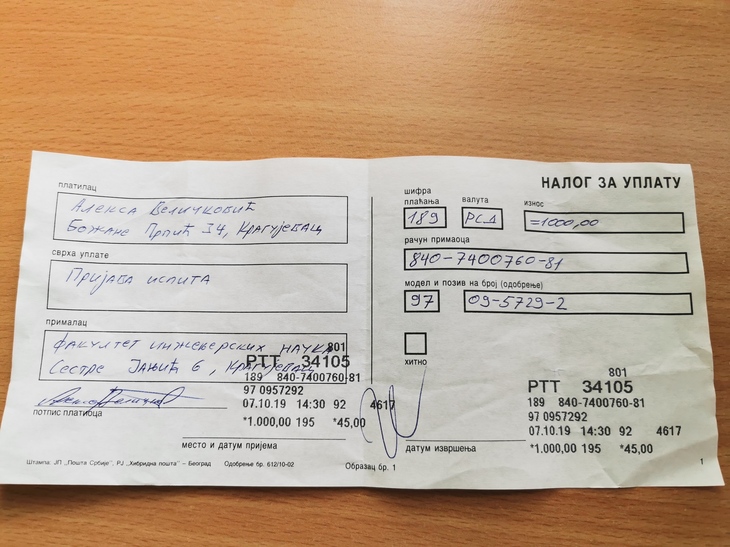 НАЛОГ ЗА УПЛАТУ
платилац
Алекса Величковић
Божане Прпић 34, Крагујевац
сврха уплате
Пријава испита
прималац
Факултет инжењерских наука
Сестре Јањић 6, Крагујевац
потпис платиоца
место и датум пријема
801
PTT 34105
189 840-7400760-81
97 0957292
07.10.19 14:30 92 4617
*1.000,00 195 *45,00
шифра плаћања
189
валута
РСД
износ
=1000,00
рачун примаоца
840-7400760-81
модел и позив на број (одобрење)
97
09-5729-2
хитно
801
PTT 34105
189 840-7400760-81
97 0957292
07.10.19 14:30 92 4617
*1.000,00 195 *45,00
датум извршења
Штампа: ЈП „Пошта Србије”, РЈ „Хибридна пошта” – Београд Одобрење бр. 612/10-02
Образац бр. 1
1